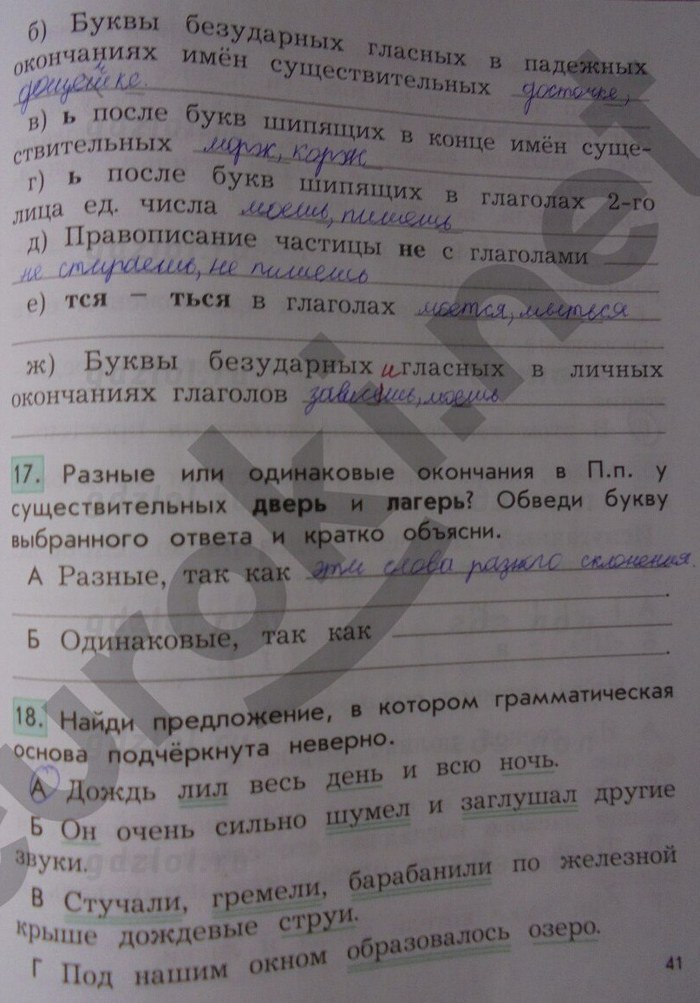 б) Буквы безударных гласных в падежных
окончаниях имён существительных досточке,
дощечке.
в) ь после букв шипящих в конце имён суще-
ствительных морж, корж
г) ь после букв шипящих в глаголах 2-го
лица ед. числа моешь, пишешь
д) Правописание частицы не с глаголами
не стираешь, не пишешь
е) тся – ться в глаголах моется, мыться
ж) Буквы безударных гласных в личных
окончаниях глаголов зависишь, моешь
17. Разные или одинаковые окончания в П.п. у
существительных дверь и лагерь? Обведи букву
выбранного ответа и кратко объясни.
А Разные, так как эти слова разного склонения.
Б Одинаковые, так как
18. Найди предложение, в котором грамматическая
основа подчёркнута неверно.
А Дождь лил весь день и всю ночь.
Б Он очень сильно шумел и заглушал другие
звуки.
В Стучали, гремели, барабанили по железной
крыше дождевые струи.
Г Под нашим окном образовалось озеро.
41
euroki.net